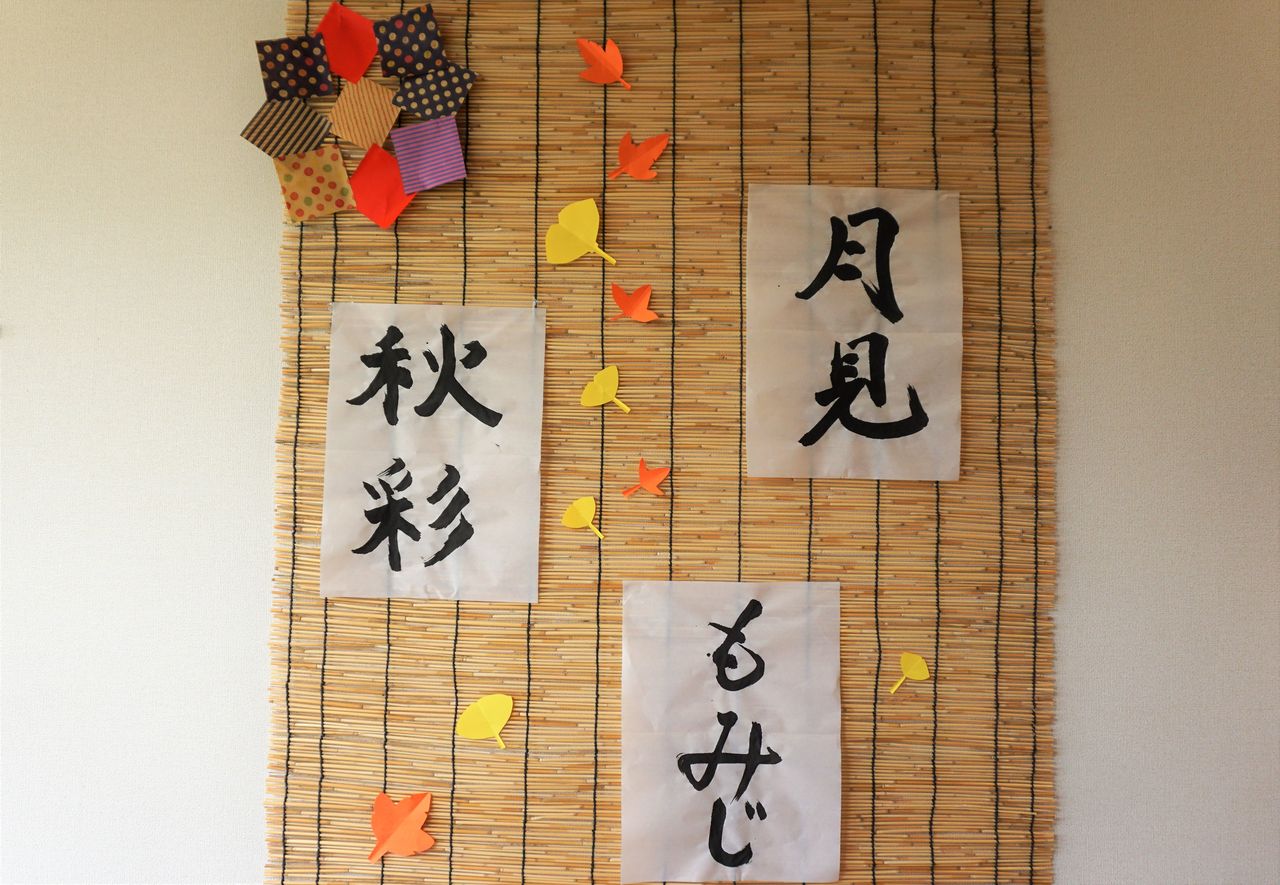 月見
もみじ
秋彩